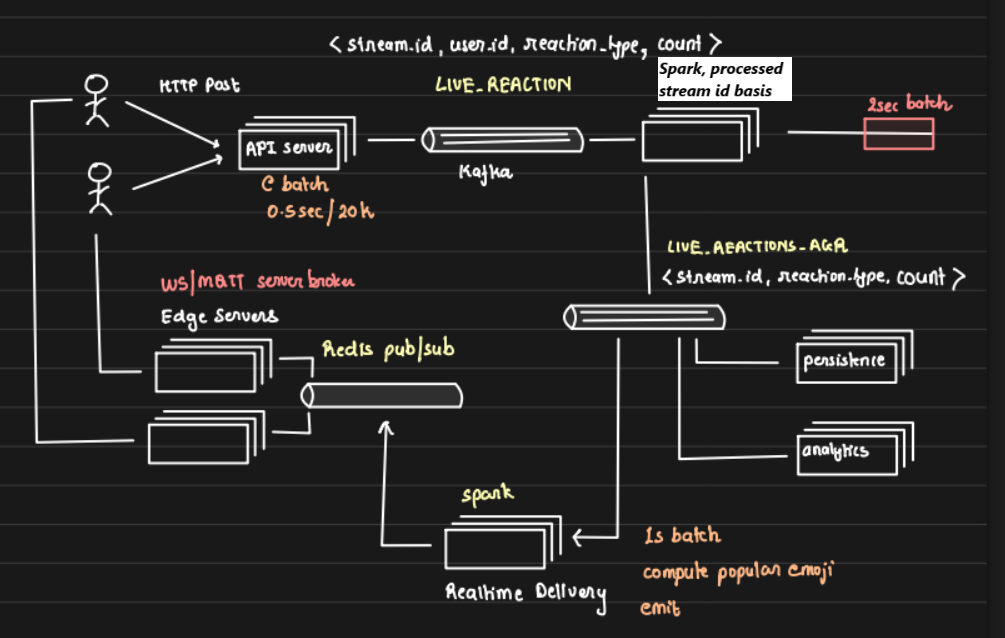 < stream.id, user.id, reaction_type, count >
HTTP Post
LIVE_REACTION
Spark, processed
stream id basis
2sec batch
API server
Kafka
C batch
0.5sec/20k
LIVE_REACTIONS_AGR
< stream.id, reaction.type, count >
WS/MQTT server broker
Edge Servers
Redis pub/sub
persistence
analytics
spark
1s batch
compute popular emoji
emit
Realtime Delivery